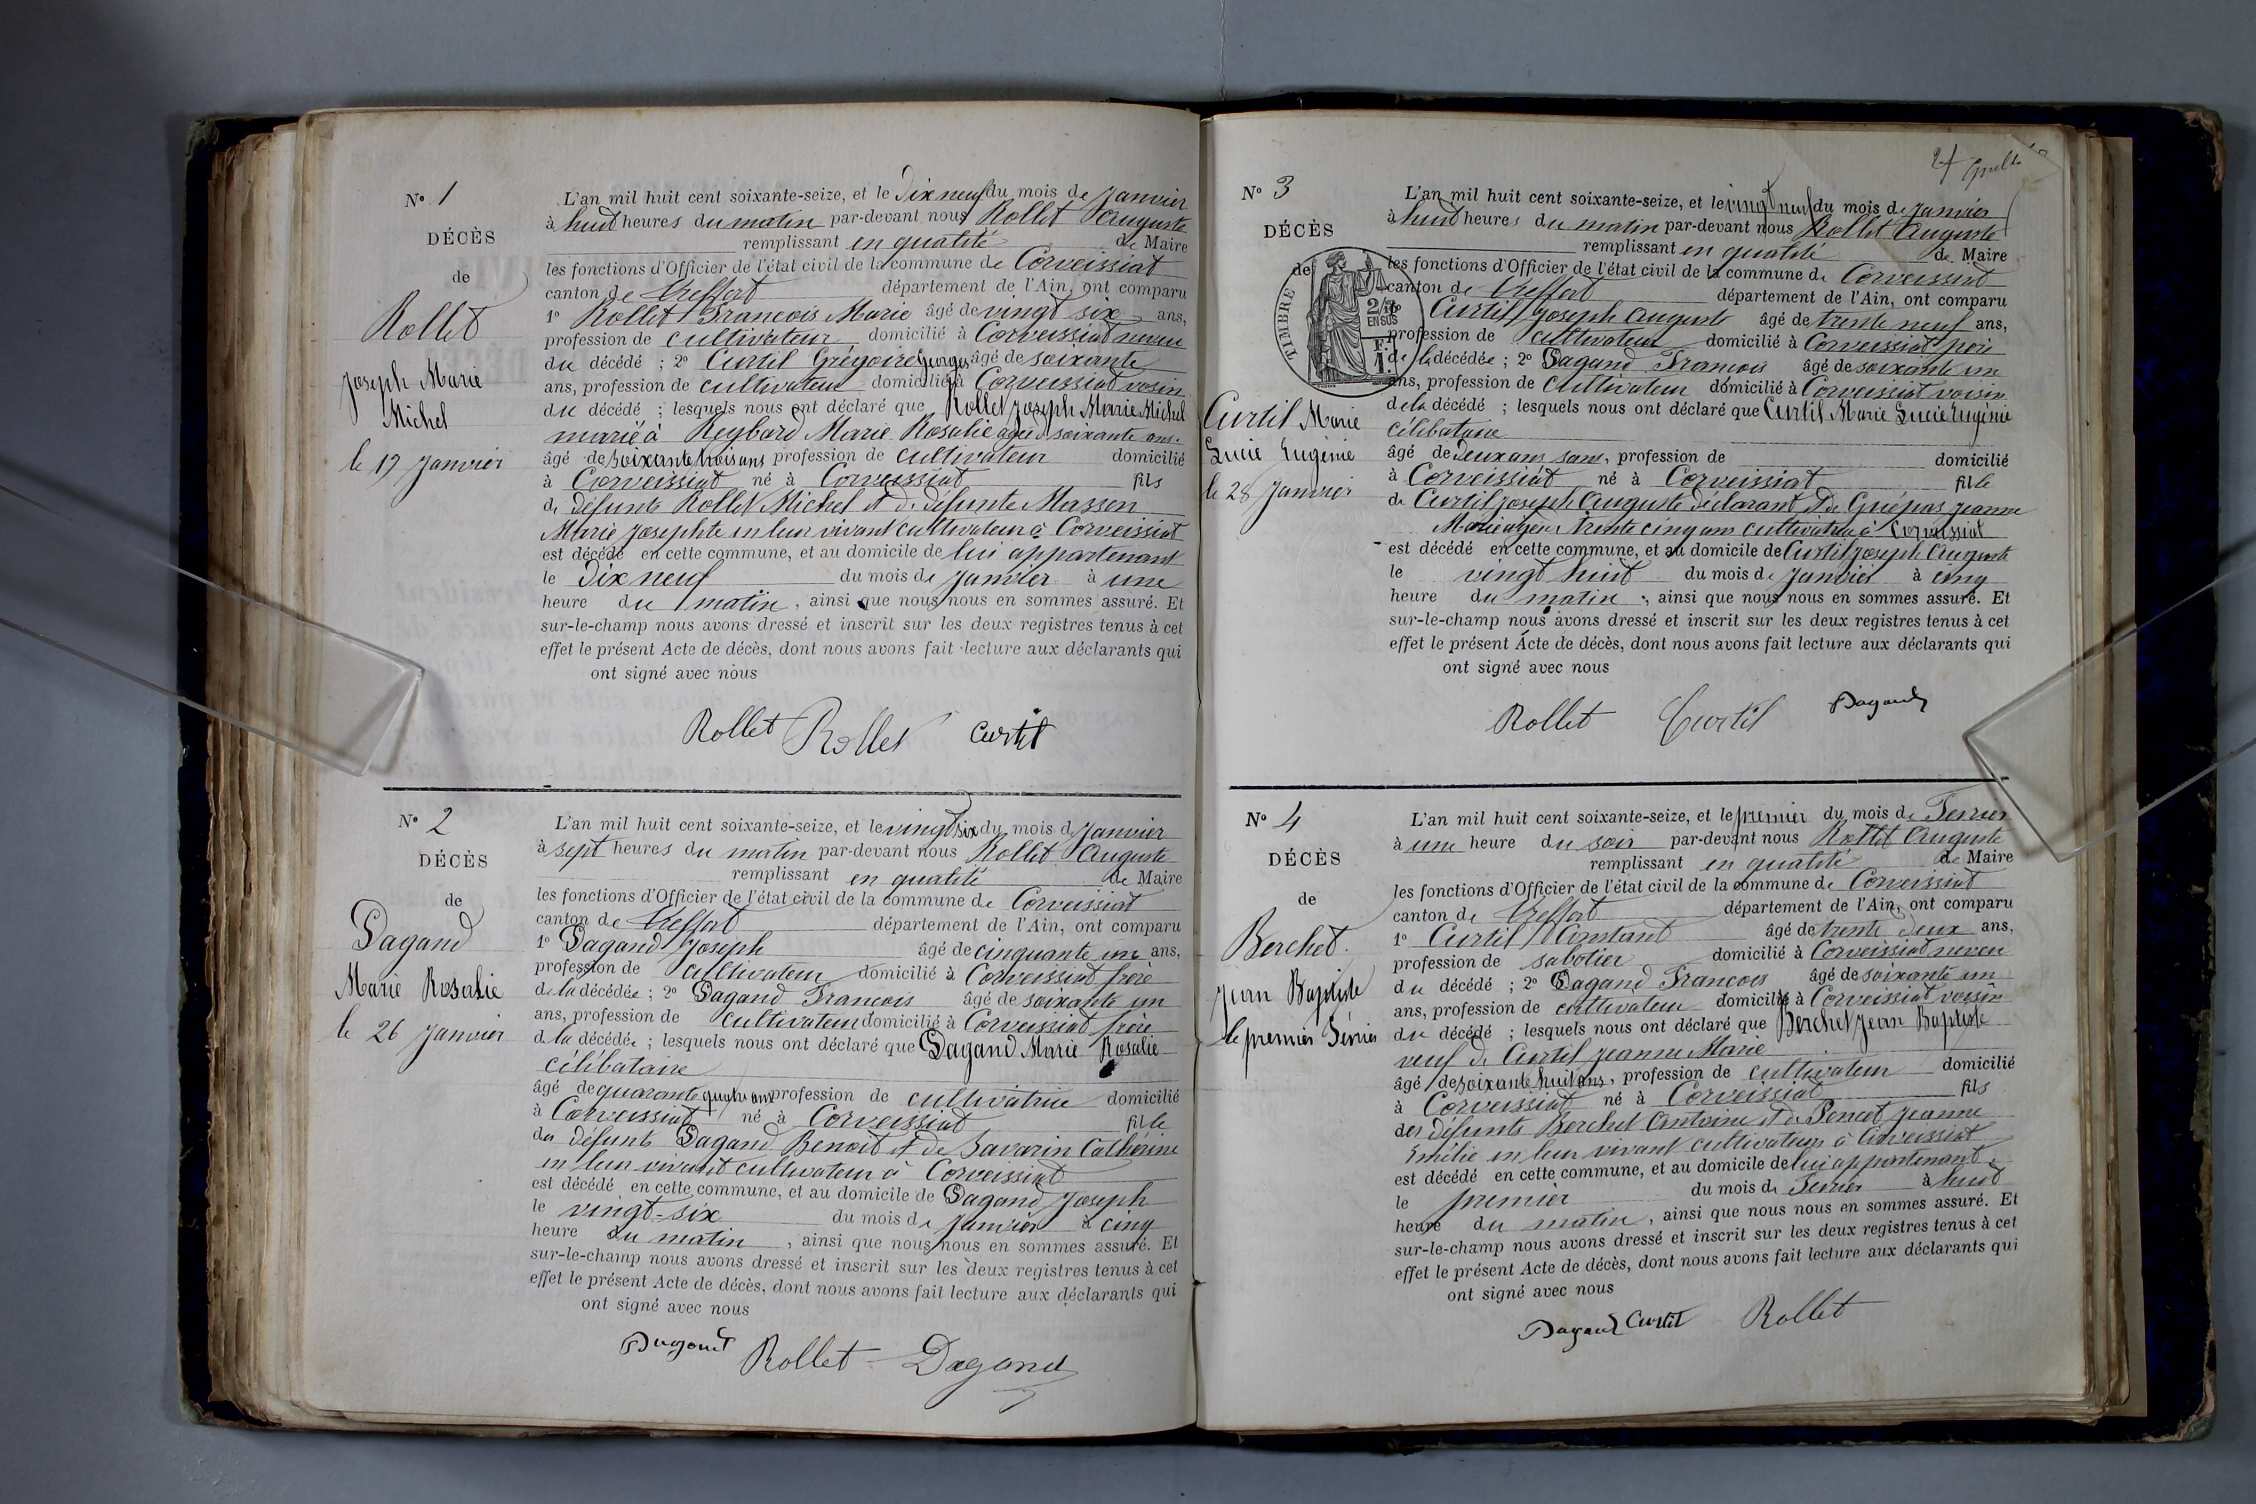 N° 1
DÉCÈS
de
Rollet
Joseph Marie
Michel
le 19 Janvier
L'an mil huit cent soixante-seize, et le Dix neuf du mois de Janvier
à huit heures du matin par-devant nous Rollet Auguste
remplissant en qualité de Maire
les fonctions d'Officier de l'état civil de la commune de Corveissiat
canton de Treffort département de l'Ain, ont comparu
1° Rollet François Marie âgé de vingt six ans,
profession de cultivateur domicilié à Corveissiat neveu
du décédé ; 2° Curtil Grégoire Georges âgé de soixante
ans, profession de cultivateur domicilié à Corveissiat voisin
du décédé ; lesquels nous ont déclaré que Rollet Joseph Marie Michel
marié à Reybard Marie Rosalie agée soixante ans.
âgé de soixante trois ans profession de cultivateur domicilié
à Corveissiat né à Corveissiat fils
de défunts Rollet Michel et de défunte Masson
Marie Josephte en leur vivant cultivateur à Corveissiat
est décédé en cette commune, et au domicile de lui appartenant
le Dix neuf du mois de Janvier à une
heure du matin, ainsi que nous nous en sommes assuré. Et
sur-le-champ nous avons dressé et inscrit sur les deux registres tenus à cet
effet le présent Acte de décès, dont nous avons fait lecture aux déclarants qui
ont signé avec nous
Rollet Rollet Curtil
N° 2
DÉCÈS
de
Dagand
Marie Rosalie
le 26 Janvier
L'an mil huit cent soixante-seize, et le vingt six du mois de Janvier
à sept heures du matin par-devant nous Rollet Auguste
remplissant en qualité de Maire
les fonctions d'Officier de l'état civil de la commune de Corveissiat
canton de Treffort département de l'Ain, ont comparu
1° Dagand Joseph âgé de cinquante un ans,
profession de cultivateur domicilié à Corveissiat frère
de la décédée ; 2° Dagand François âgé de soixante un
ans, profession de cultivateur domicilié à Corveissiat frère
de la décédée ; lesquels nous ont déclaré que Dagand Marie Rosalie
célibataire
âgé de quarante quatre ans profession de cultivatrice domicilié
à Corveissiat né à Corveissiat fille
des défunts Dagand Benoit et de Savarin Catherine
en leur vivant cultivateur à Corveissiat
est décédé en cette commune, et au domicile de Dagand Joseph
le vingt-six du mois de Janvier à cinq
heure du matin, ainsi que nous nous en sommes assuré. Et
sur-le-champ nous avons dressé et inscrit sur les deux registres tenus à cet
effet le présent Acte de décès, dont nous avons fait lecture aux déclarants qui
ont signé avec nous
Dagand Rollet Dagand
N° 3
DÉCÈS
de
TIMBRE
2/10
EN SUS
F.
1.
Curtil Marie
Lucie Eugénie
le 28 Janvier
L'an mil huit cent soixante-seize, et le vingt neuf du mois de Janvier
à huit heures du matin par-devant nous Rollet Auguste
remplissant en qualité de Maire
les fonctions d'Officier de l'état civil de la commune de Corveissiat
canton de Treffort département de l'Ain, ont comparu
1° Curtil Joseph Auguste âgé de trente neuf ans,
profession de cultivateur domicilié à Corveissiat père
de la décédée ; 2° Dagand François âgé de soixante un
ans, profession de cultivateur domicilié à Corveissiat voisin
de la décédé ; lesquels nous ont déclaré que Curtil Marie Lucie Eugénie
célibataire
âgé de deux ans, profession de domicilié
à Corveissiat né à Corveissiat fille
de Curtil Joseph Auguste déclarant et de Guépas Jeanne
Marie agée trente cinq ans cultivateur à Corveissiat
est décédé en cette commune, et au domicile de Curtil Joseph Auguste
le vingt huit du mois de Janvier à cinq
heure du matin, ainsi que nous nous en sommes assuré. Et
sur-le-champ nous avons dressé et inscrit sur les deux registres tenus à cet
effet le présent Acte de décès, dont nous avons fait lecture aux déclarants qui
ont signé avec nous
Rollet Curtil Dagand
N° 4
DÉCÈS
de
Berchet
Jean Baptiste
le premier Février
L'an mil huit cent soixante-seize, et le premier du mois de Fevrier
à une heure du soir par-devant nous Rollet Auguste
remplissant en qualité de Maire
les fonctions d'Officier de l'état civil de la commune de Corveissiat
canton de Treffort département de l'Ain, ont comparu
1° Curtil Constant âgé de trente deux ans,
profession de sabotier domicilié à Corveissiat neveu
du décédé ; 2° Dagand François âgé de soixante un
ans, profession de cultivateur domicilié à Corveissiat voisin
du décédé ; lesquels nous ont déclaré que Berchet Jean Baptiste
veuf de Curtil Jeanne Marie
âgé de soixante huit ans, profession de cultivateur domicilié
à Corveissiat né à Corveissiat fils
des défunts Berchet Antoine et de Poncet Jeanne
Emélie en leur vivant cultivateurs à Corveissiat
est décédé en cette commune, et au domicile de lui appartenant
le premier du mois de Fevrier à huit
heure du matin, ainsi que nous nous en sommes assuré. Et
sur-le-champ nous avons dressé et inscrit sur les deux registres tenus à cet
effet le présent Acte de décès, dont nous avons fait lecture aux déclarants qui
ont signé avec nous
Dagand Curtil Rollet